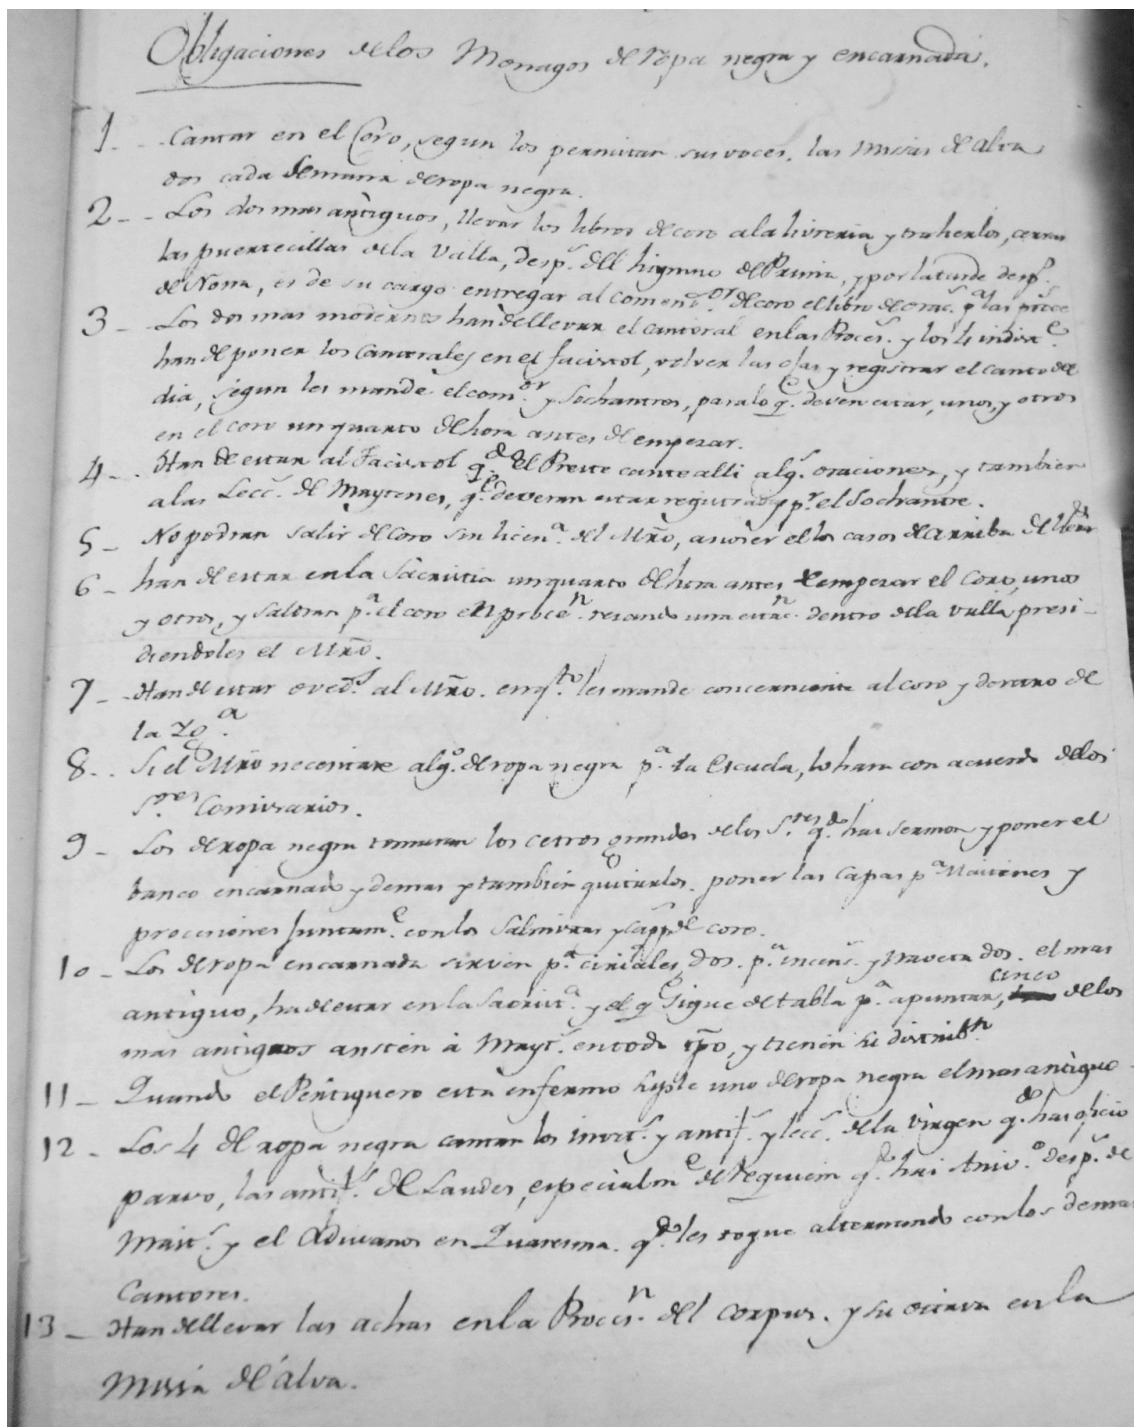 Obligaciones de los Monagos de ropa negra y encarnada.
1. - Cantar en el Coro, segun los permitan sus voces, las misas de alva
dos cada semana de ropa negra.
2 - - Los dos mas antiguos, llevar los libros de coro a la livreria y traherlos, cerrar
las puertecillas de la Valla, desp.s dell hignno de Prima, y por la tarde desp.s
de Nona, es de su cargo entregar al comen.or de coro el libro de orac.s p.a las proce
3 - Los dos mas modernos han de llevar el cantoral en las Proces.s y los 4 indis.e
han de poner los Cantorales en el facistol, volver las ojas y registrar el canto del
dia, segun les mande el com.or y Sochantres, para lo q.e deven estar, unos, y otros
en el coro un quarto de hora antes de empezar.
4 - . Han de estar al Facistol q.do el Preste cante alli alg.s oraciones, y tambien
a las Lecc.s de Maytines, q.e deveran estar registradas p.r el Sochantre.
5 - No podran salir del coro sin licen.a del Mro, a no ser en los casos de arriba
6 - han de estar en la Sacristia un quarto de hora antes de empezar el Coro, unos
y otros, y saldran p.a el coro en proce.n rezando una estac.n dentro de la valla presi-
diendoles el Mro.
7 - Han de estar oved.s al Mro. en q.to les mande concerniente al coro y dentro de
la Yg.a
8 - . Si el Mro necesitare alg.o de ropa negra p.a la Escuela, lo hara con acuerdo de los
S.res Comisarios.
9 - Los de ropa negra tomaran los cetros grandes de los S.res q.do hai sermon y poner el
banco encarnado y demas y tambien quitarlos. poner las Capas p.a Maitines y
procesiones juntam.e con los Salmistas y capp.s de coro.
10 - Los de ropa encarnada sirven p.a ciriales, dos. p.a incens.o y naveta dos. el mas
antiguo, ha de estar en la Sacrist.a y el q.e sigue de tabla p.a apuntar, cinco de los
mas antiguos asisten à Mayt.s en todo tpo, y tienen su distrib.n
11 - Quando el Pertiguero esta enfermo suple uno de ropa negra el mas antiguo
12 - Los 4 de ropa negra cantan los invit.s y antif.s y lecc.s de la virgen q.do hai oficio
parvo, las antif.s de Laudes, especialm.e de Requiem q.do hai Aniv.o desp.s de
Mait.s y el Adiuvanos en Quaresma. q.do les toque alternando con los demas
Cantores.
13 - Han de llevar las achas en la Proces.n del Corpus. y su octava en la
Missa de alva.